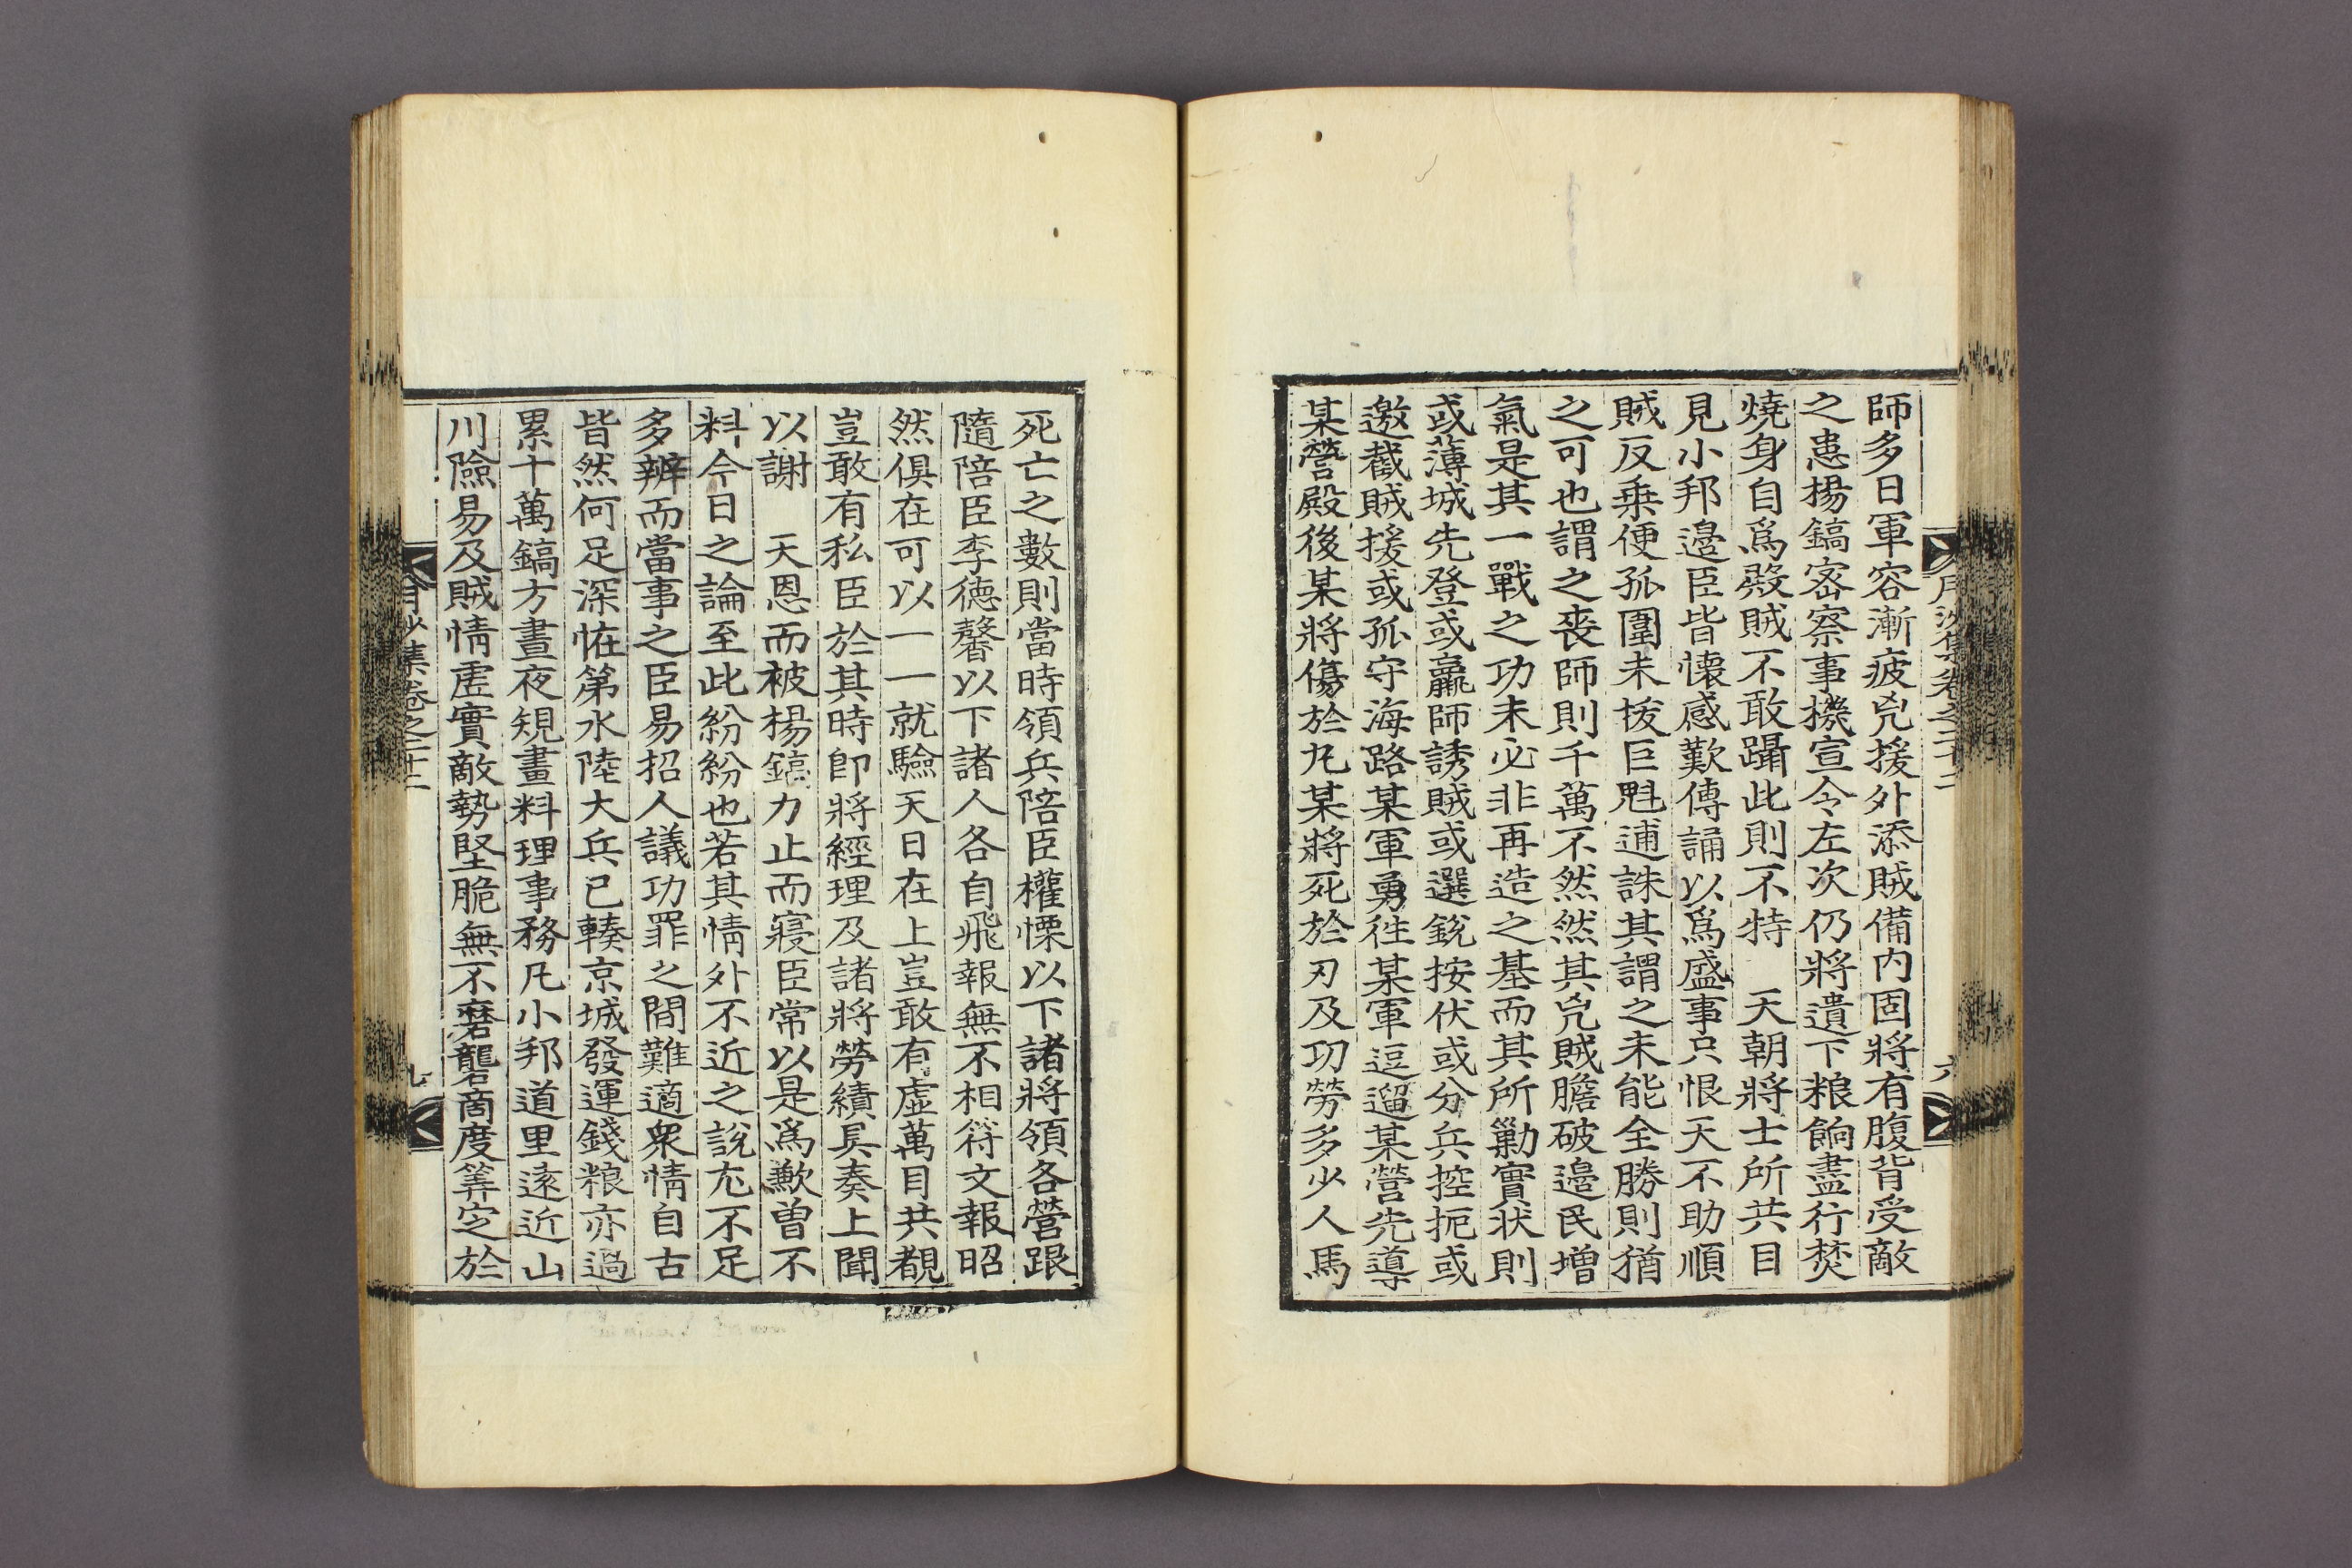 月沙集卷之二十二
六
師多日軍容漸疲兇援外添賊備內固將有腹背受敵
之患楊鎬密察事機宣令左次仍將遺下粮餉盡行焚
燒身自爲殿賊不敢躡此則不特 天朝將士所共目
見小邦邊臣皆懷感歎傳誦以爲盛事只恨天不助順
賊反乘便孤圍未拔巨魁逋誅其謂之未能全勝則猶
之可也謂之喪師則千萬不然然其兇賊膽破邊民增
氣是其一戰之功未必非再造之基而其所勦實狀則
或薄城先登或羸師誘賊或選銳按伏或分兵控扼或
邀截賊援或孤守海路某軍勇徃某軍逗遛某營先導
某營殿後某將傷於丸某將死於刃及功勞多少人馬
死亡之數則當時領兵陪臣權慄以下諸將領各營跟
隨陪臣李德馨以下諸人各自飛報無不相符文報昭
然俱在可以一一就驗天日在上豈敢有虛萬目共覩
豈敢有私臣於其時卽將經理及諸將勞績具奏上聞
以謝 天恩而被楊鎬力止而寢臣常以是爲歉曾不
料今日之論至此紛紛也若其情外不近之說尤不足
多辨而當事之臣易招人議功罪之間難適衆情自古
皆然何足深恠第水陸大兵已輳京城發運錢粮亦過
累十萬鎬方晝夜規畫料理事務凡小邦道里遠近山
川險易及賊情虛實敵勢堅脆無不磨礱商度筭定於
月沙集卷之二十二
七